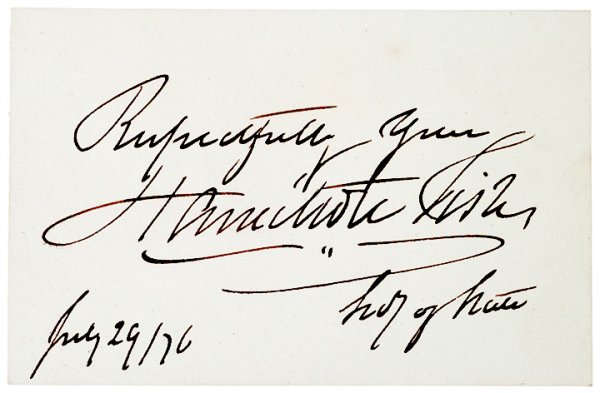 Respectfully Yours
Hamilton Fish
Secy of State
July 29/76